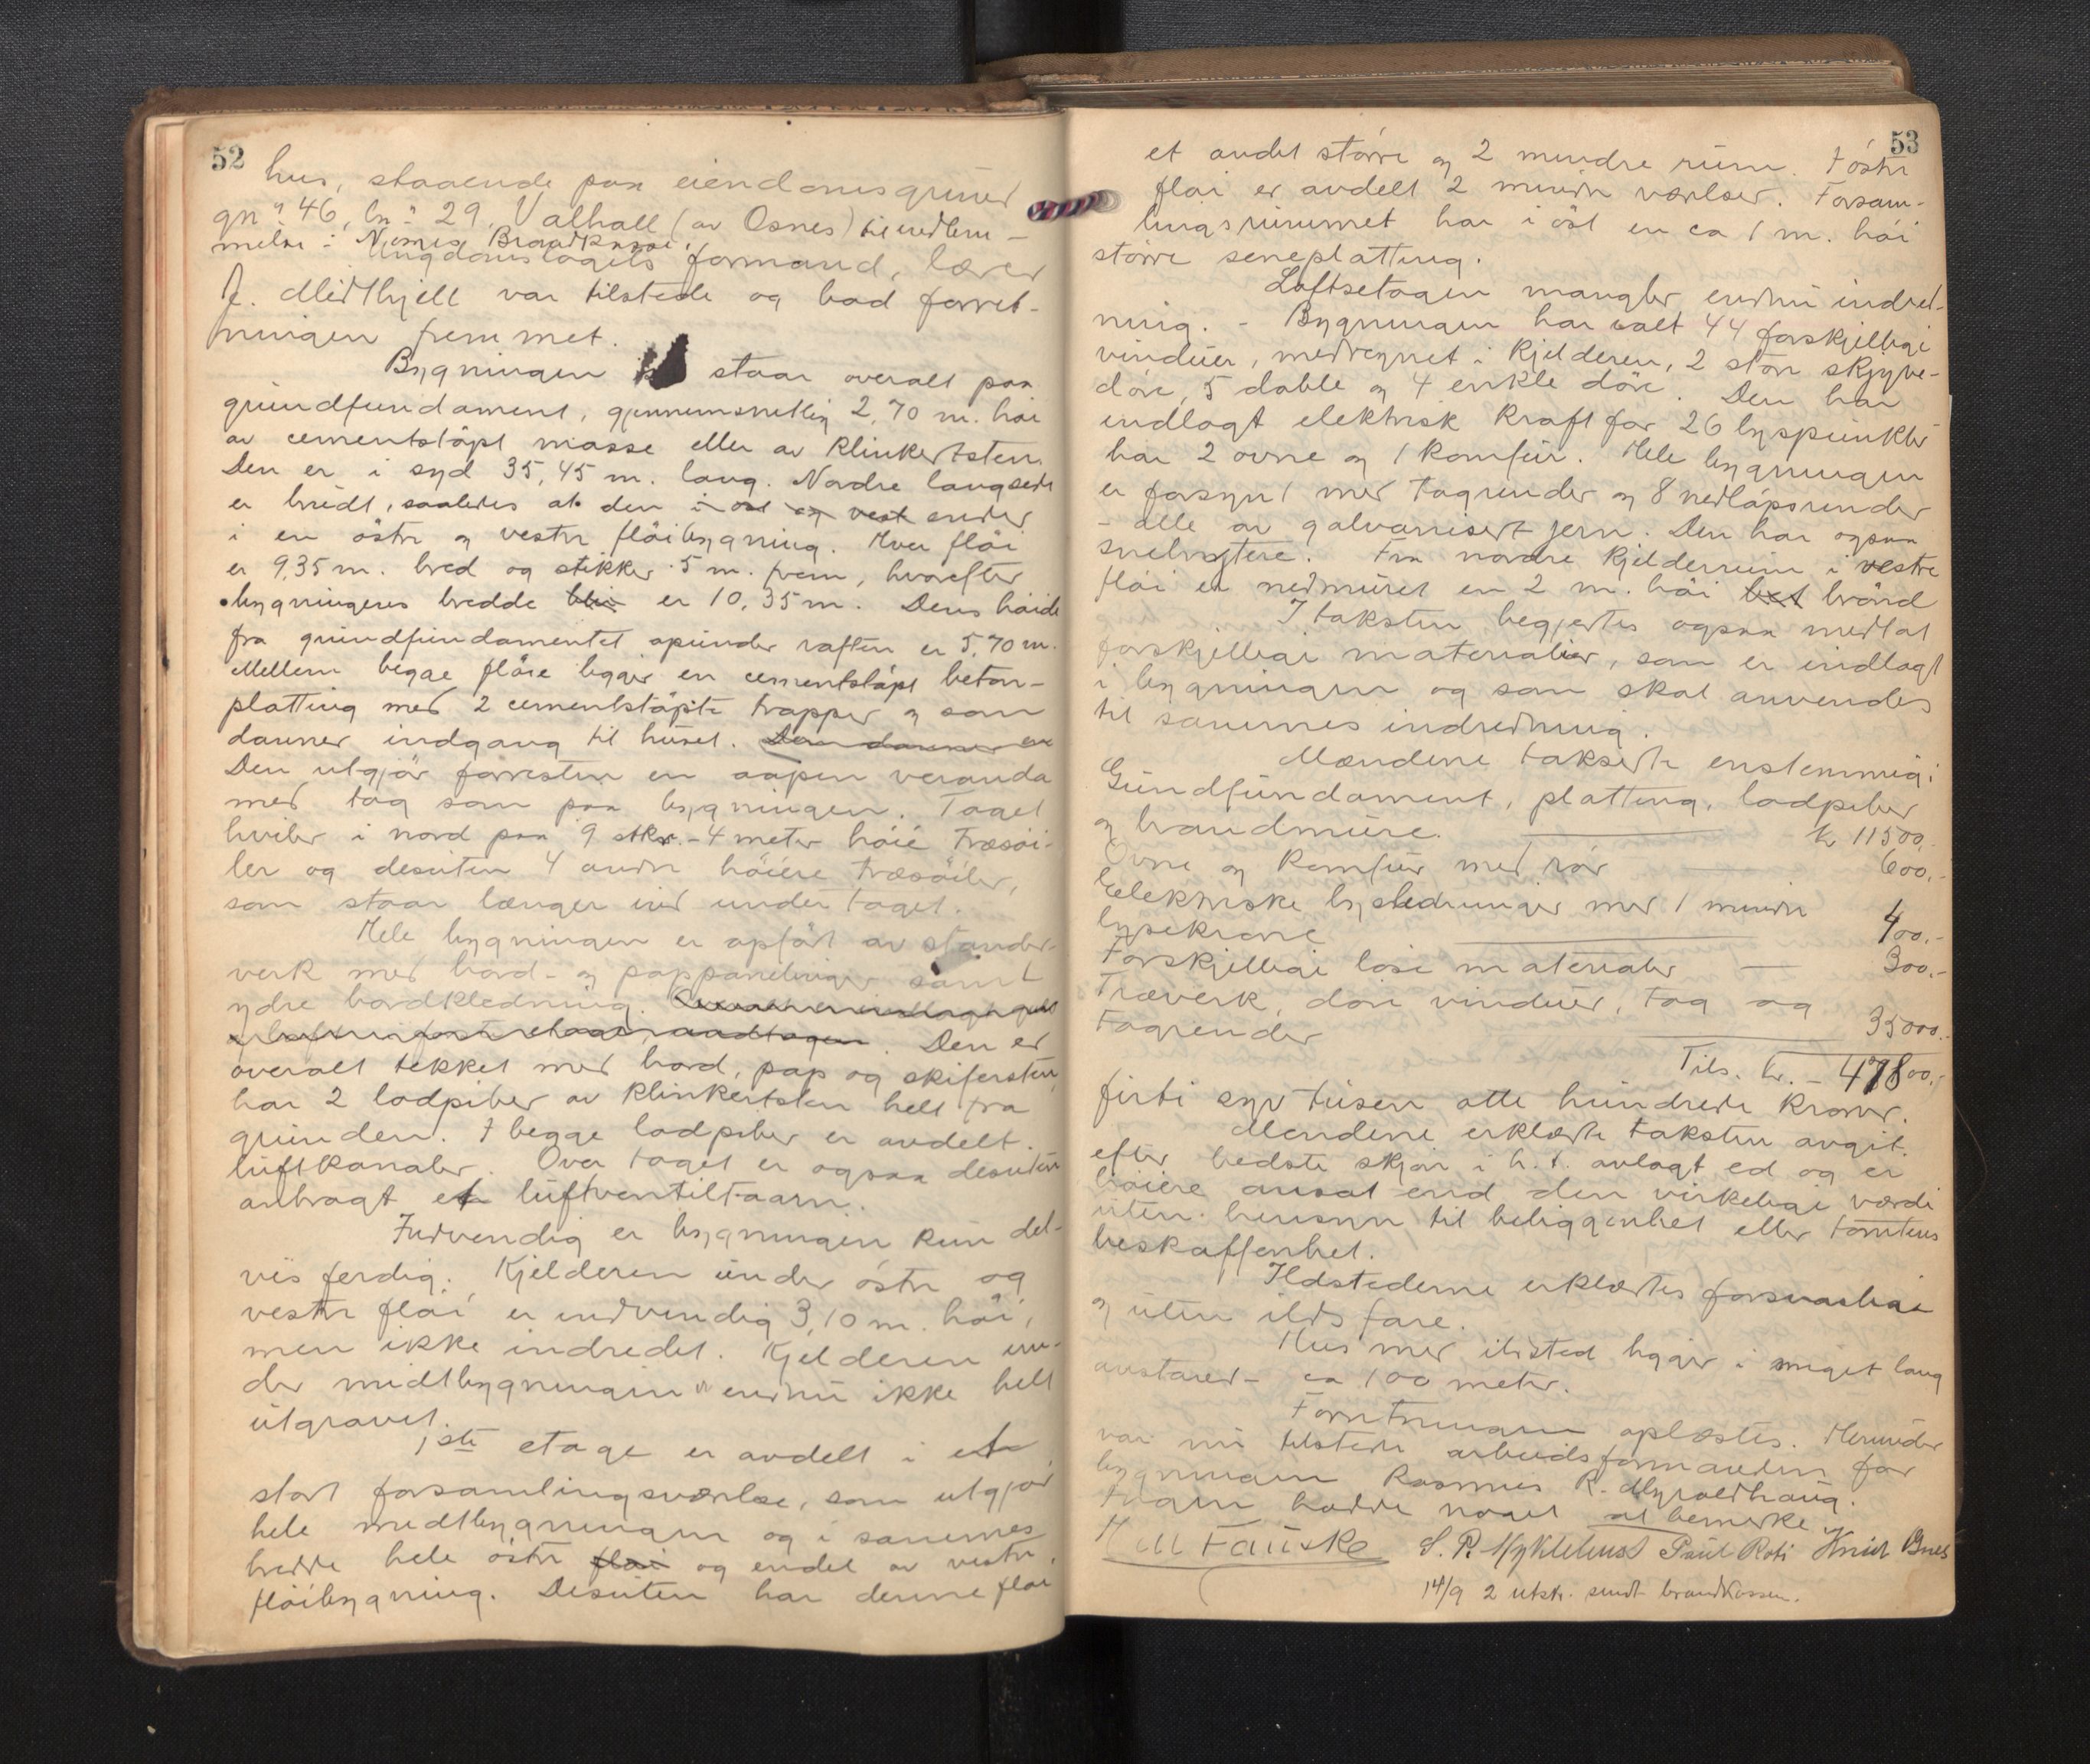 52
hus, staaende paa eiendomsgrund
gn. 46, bn. 29, Valhall (av Osnes) til indlem-
melse i Norges Brandkasse.
Ungdomslagets formand, lærer
J. Midthjell var tilstede og bad forret-
ningen fremmet.
Bygningen staar overalt paa
grundfundament, gjennemsnitlig 2,70 m. høi
av cementstøpt masse eller av klinkertsten.
Den er i syd 35,45 m. lang. Nordre langside
er brudt, saaledes at den i øst og vest ender
i en østre og vestre fløibygning. Hver fløi
er 9,35 m. bred og stikker 5 m. frem, hvorefter
bygningens bredde blir er 10,35 m. Dens høide
fra grundfundamentet opunder raften er 5,70 m.
Mellem begge fløie ligger en cementstøpt beton-
platting med 2 cementstøpte trapper og som
danner indgang til huset. Den danner en
Den utgjør forresten en aapen veranda
med tag som paa bygningen. Taget
hviler i nord paa 9 stkr. - 4 meter høie træsøi-
ler og desuten 4 andre høiere træsøiler,
som staar længer ind under taget.
Hele bygningen er opført av stender-
verk med bord- og pappanelinger samt
ydre bordklædning.
Den er
overalt tekket med bord, pap og skifersten,
har 2 lodpiber av klinkertsten helt fra
grunden. I begge lodpiber er avdelt
luftkanaler. Over taget er ogsaa desuten
anbragt et luftventiltaarn.
Indvendig er bygningen kun del-
vis ferdig. Kjelderen under østre og
vestre fløi er indvendig 3,10 m. høi,
men ikke indredet. Kjelderen un-
der midtbygningen er endnu ikke helt
utgravet.
1ste etage er avdelt i et
stort forsamlingsværelse, som utgjør
hele midtbygningen og i sammes
bredde hele østre fløi og endel av vestre
fløibygning. Desuten har denne fløi
53
et andet større og 2 mindre rum. I østre
fløi er avdelt 2 mindre værelser. Forsam-
lingsrummet har i øst en ca 1 m. høi
større seneplatting.
Loftsetagen mangler endnu indred-
ning. - Bygningen har ialt 44 forskjellige
vinduer, medregnet i kjelderen, 2 store skyve-
døre, 5 doble og 4 enkle døre. Den har
indlagt elektrisk kraft for 26 lyspunkter
har 2 ovne og 1 komfur. Hele bygningen
er forsynt med tagrender og 8 nedløpsrender
- alle av galvanisert jern. Den har ogsaa
snebrytere. Fra nordre kjelderrum i vestre
fløi er nedmuret en 2 m. høi brønd
I taksten begjertes ogsaa medtat
forskjellige materialier, som er indlagt
i bygningen og som skal anvendes
til sammes indredning.
Mændene takserte enstemmig:
Gundfundament, platting, lodpiber
og brandmure. kr 11500.-
Ovne og komfur med rør 600.-
Elektriske lysledninger med 1 mindre
lysekrone 400.-
Forskjellige løse materialer 300.-
Træverk, døre vinduer, tag og
tagrender 35000.-
Tils. kr. - 47800.-
firti syv tusen otte hundrede kroner.
Mendene erklærte taksten avgit
efter bedste skjøn i h. t. avlagt ed og er
høiere ansat end den virkelige værdi
uten hensyn til beliggenhet eller tomtens
beskaffenhet.
Ildstederne erklærtes forsvarlige
og uten ildsfare.
Hus med ildsted ligger i meget lang
avstand - ca 100 meter.
Forretningen oplæstes. Herunder
var nu tilstede arbeidsformanden for
bygningen Rasmus R. Myroldhaug.
Ingen hadde noget at bemerke
Fauske S. P. Myklebust Paul Roti Knut Osnes
14/9 2 utskr. sendt brandkassen.